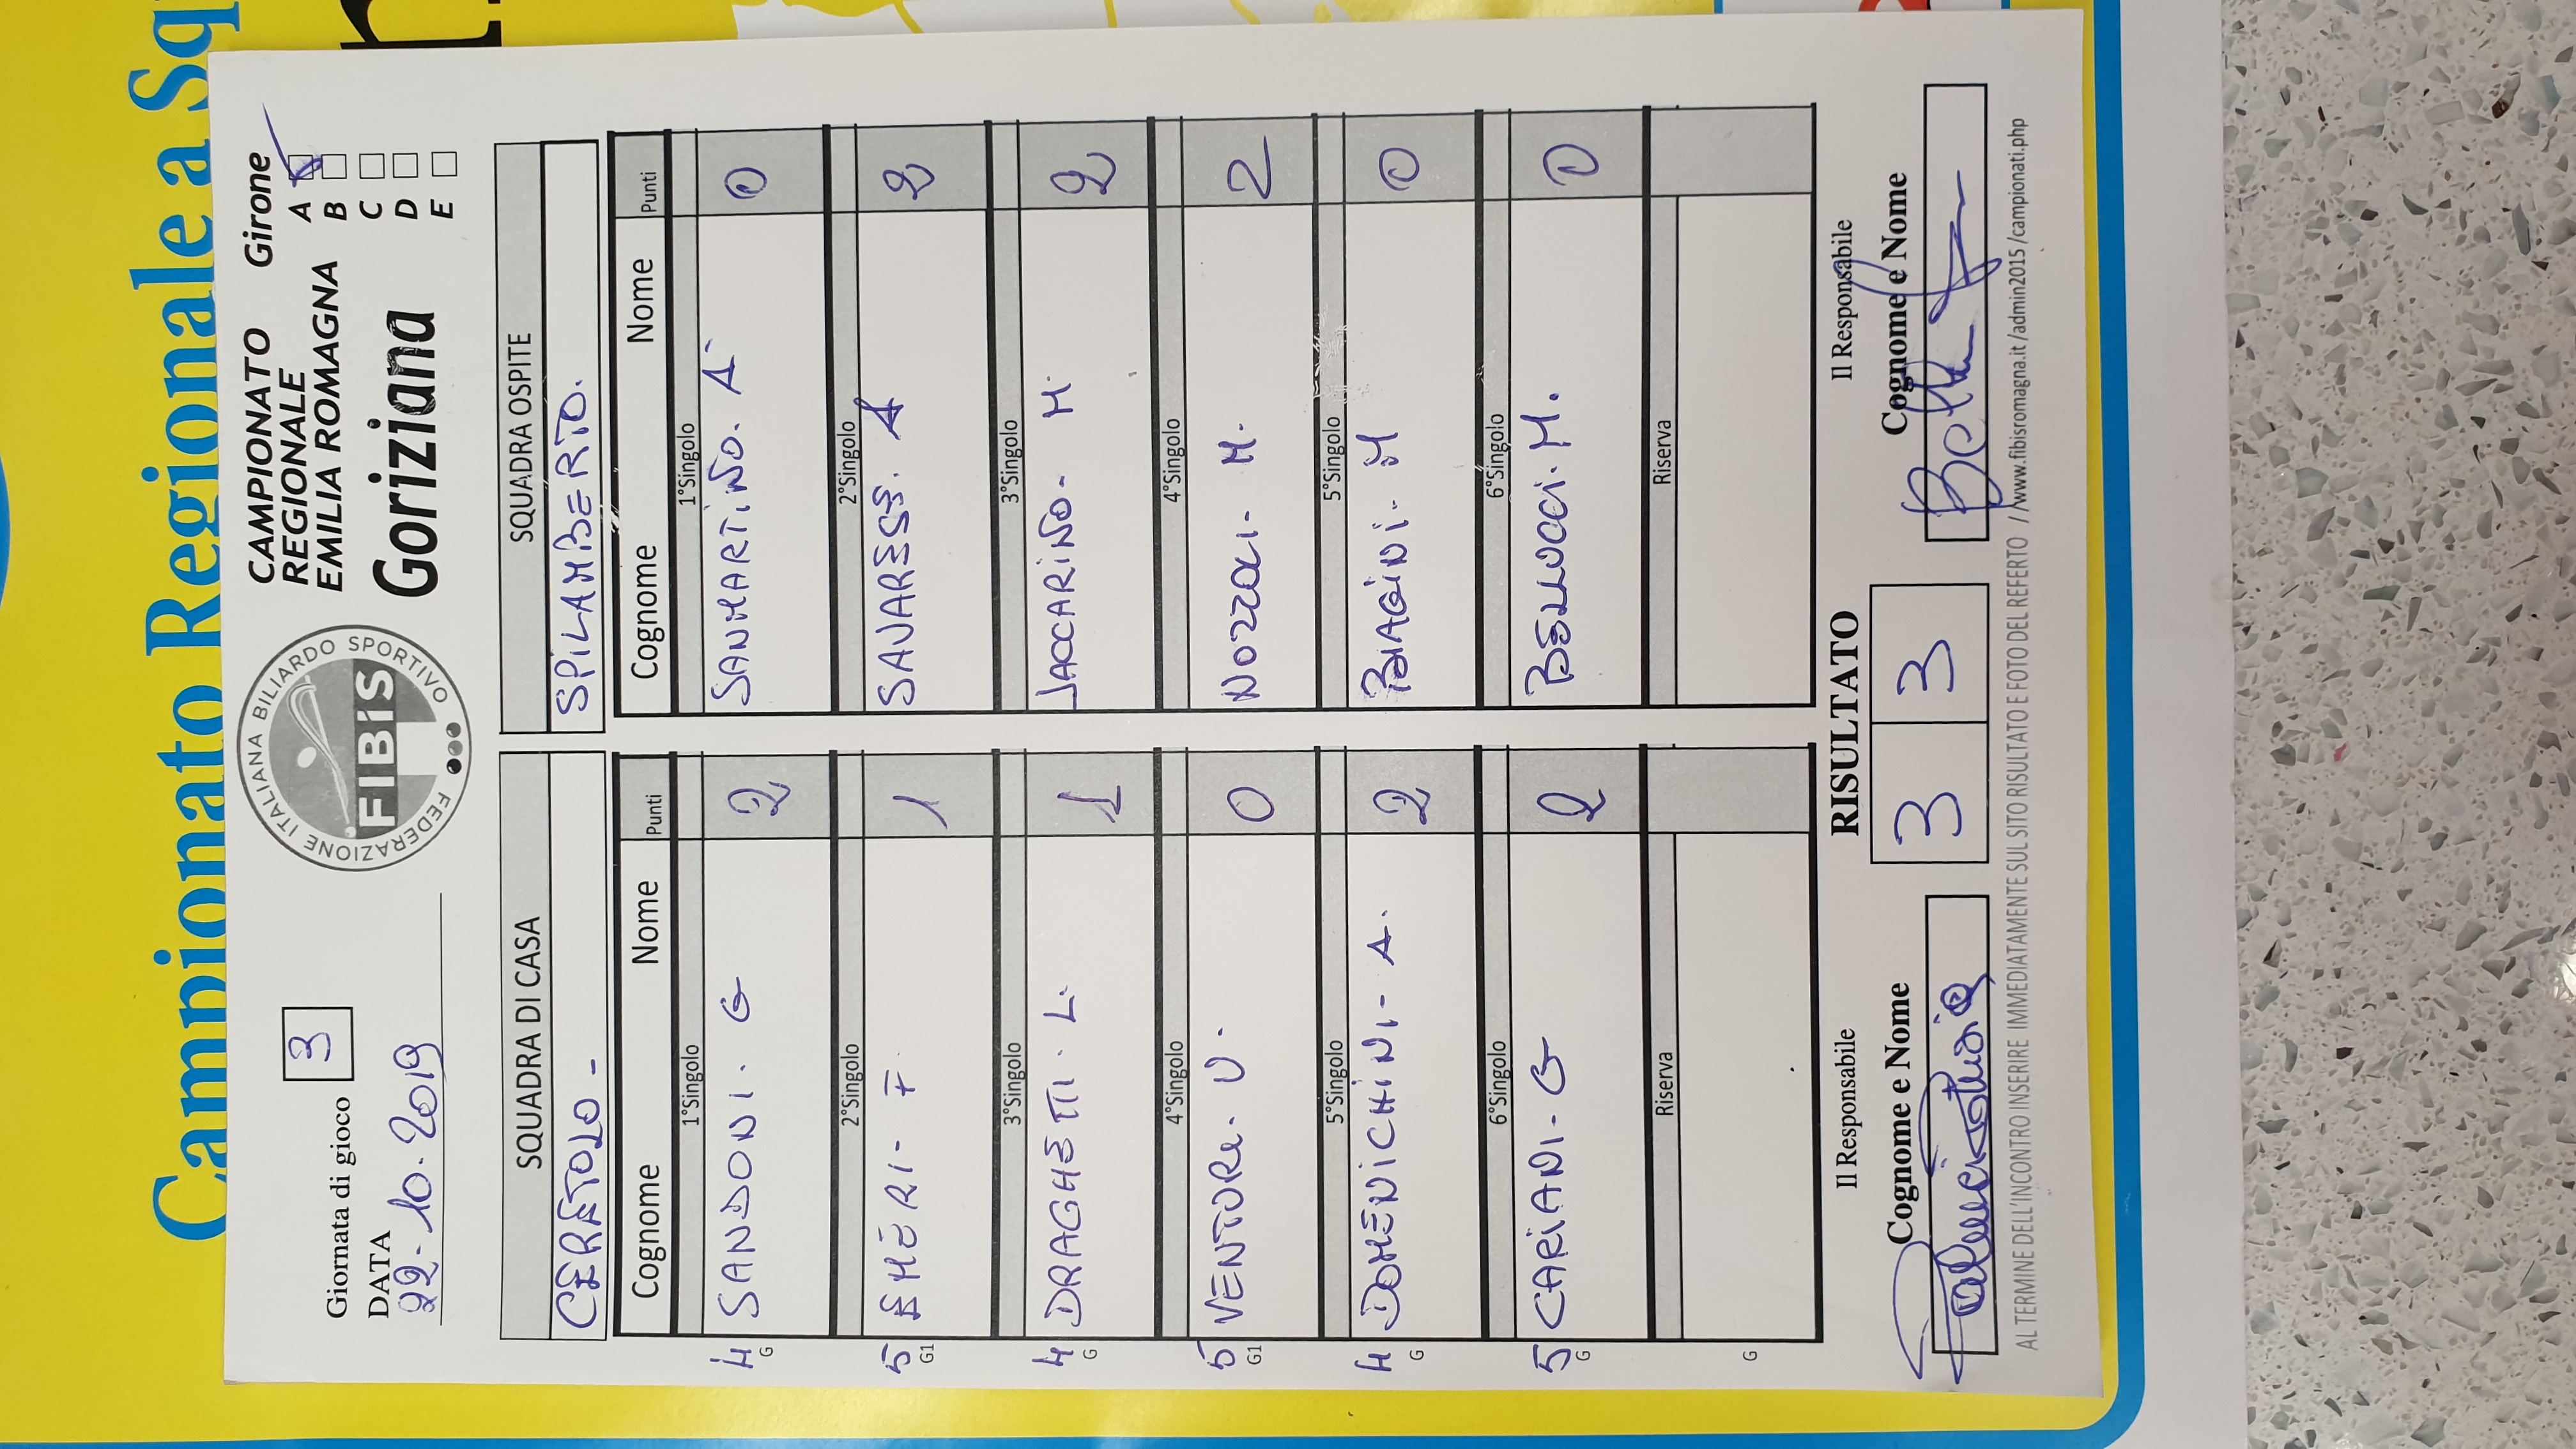 Campionato Regionale a Sq
Giornata di gioco 3
DATA
22-10-2019
FEDERAZIONE ITALIANA BILIARDO SPORTIVO
FIBiS
CAMPIONATO
REGIONALE
EMILIA ROMAGNA
Goriziana
Girone
A
B
C
D
E
SQUADRA DI CASA
CERETOLO -
Cognome Nome Punti
1°Singolo
4 G SANDONI. G 2
2°Singolo
5 G1 EMERI- F. 1
3°Singolo
4 G DRAGHETTI. L. 1
4°Singolo
5 G1 VENTURI. V. 0
5°Singolo
4 G DOMENICHINI- A. 2
6°Singolo
5 G CARIANI- G 2
Riserva
G
SQUADRA OSPITE
SPILAMBERTO.
Cognome Nome Punti
1°Singolo
SANMARTINO. A 0
2°Singolo
SAVARESE. A 2
3°Singolo
JACCARINO- M. 2
4°Singolo
NOZZOLI- M. 2
5°Singolo
BIAGINI- M 0
6°Singolo
BELLUCCI. M. 0
Riserva
Il Responsabile
Cognome e Nome
RISULTATO
3 3
Il Responsabile
Cognome e Nome
AL TERMINE DELL'INCONTRO INSERIRE IMMEDIATAMENTE SUL SITO RISULTATO E FOTO DEL REFERTO //www.fibisromagna.it/admin2015/campionati.php